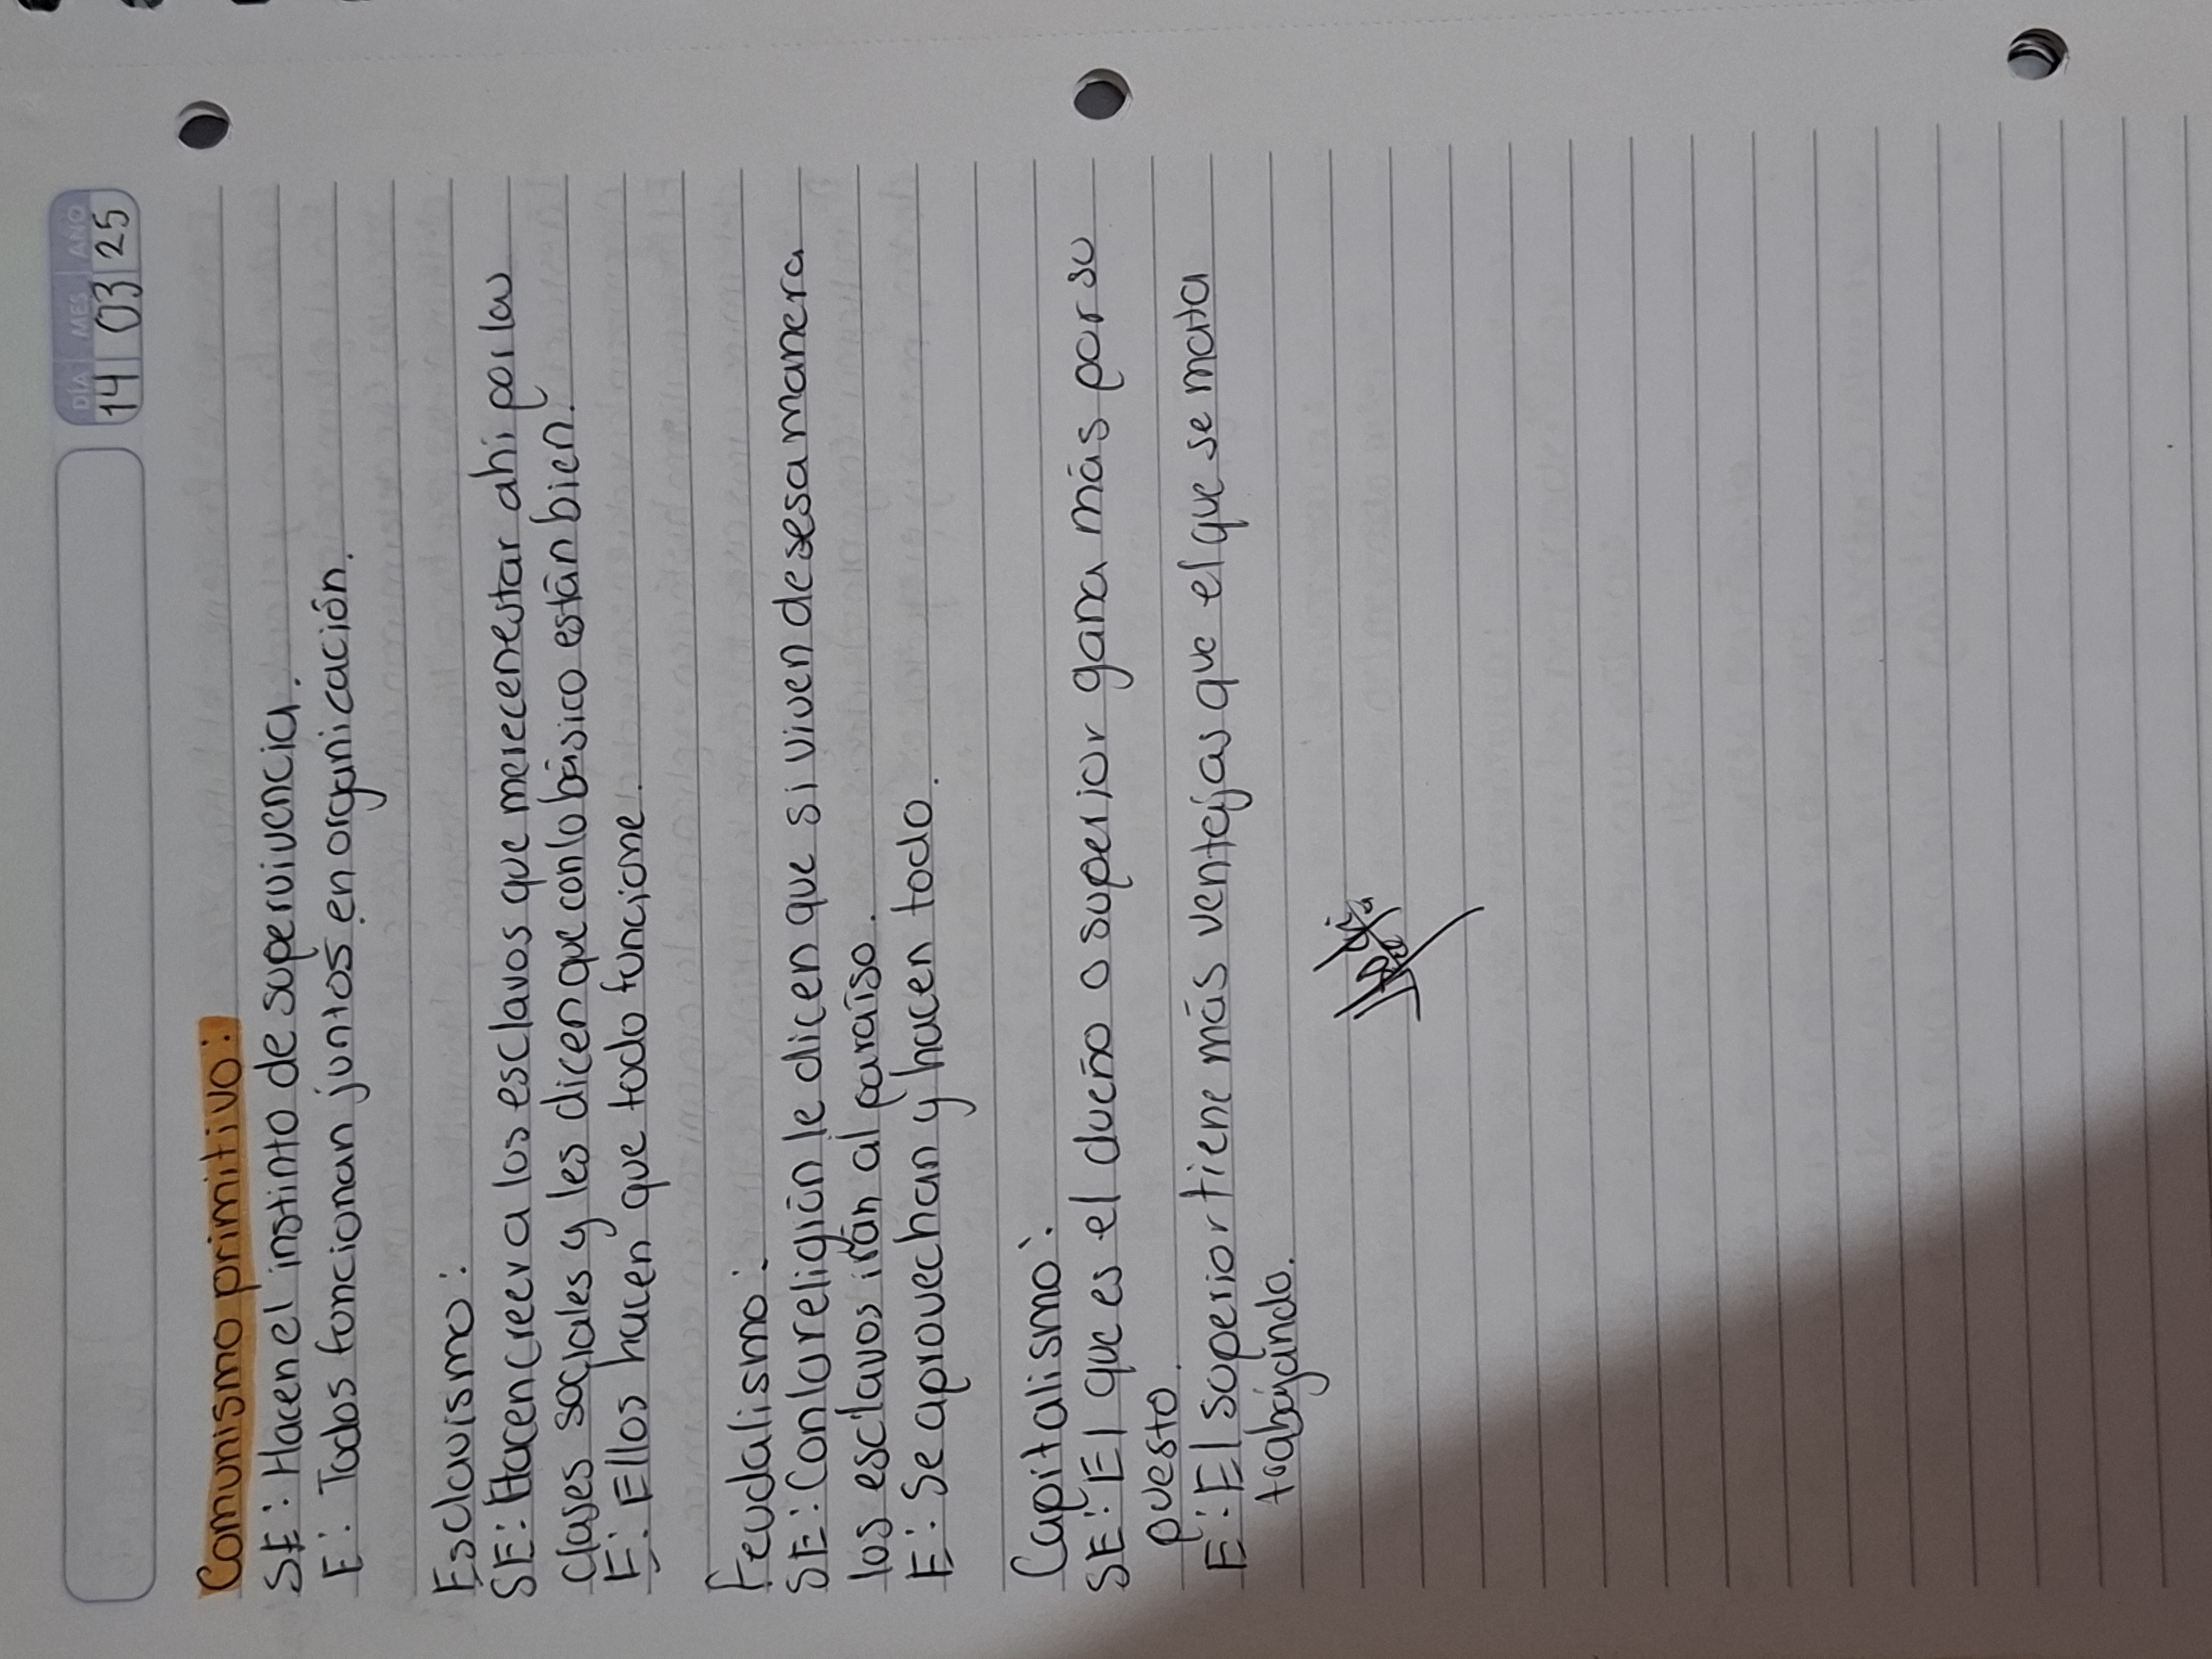 DÍA MES AÑO
14 03 25
Comunismo primitivo:
SE: Hacen el instinto de supervivencia.
E: Todos funcionan juntos en organización.
Esclavismo:
SE: Hacen creer a los esclavos que merecen estar ahi por las
clases sociales y les dicen que con lo básico están bien.
E: Ellos hacen que todo funcione.
Feudalismo:
SE: Con la religión le dicen que si viven de esa manera
los esclavos irán al paraíso.
E: Se aprovechan y hacen todo.
Capitalismo:
SE: El que es el dueño o superior gana más por su
puesto.
E: El superior tiene más ventajas que el que se mata
trabajando.